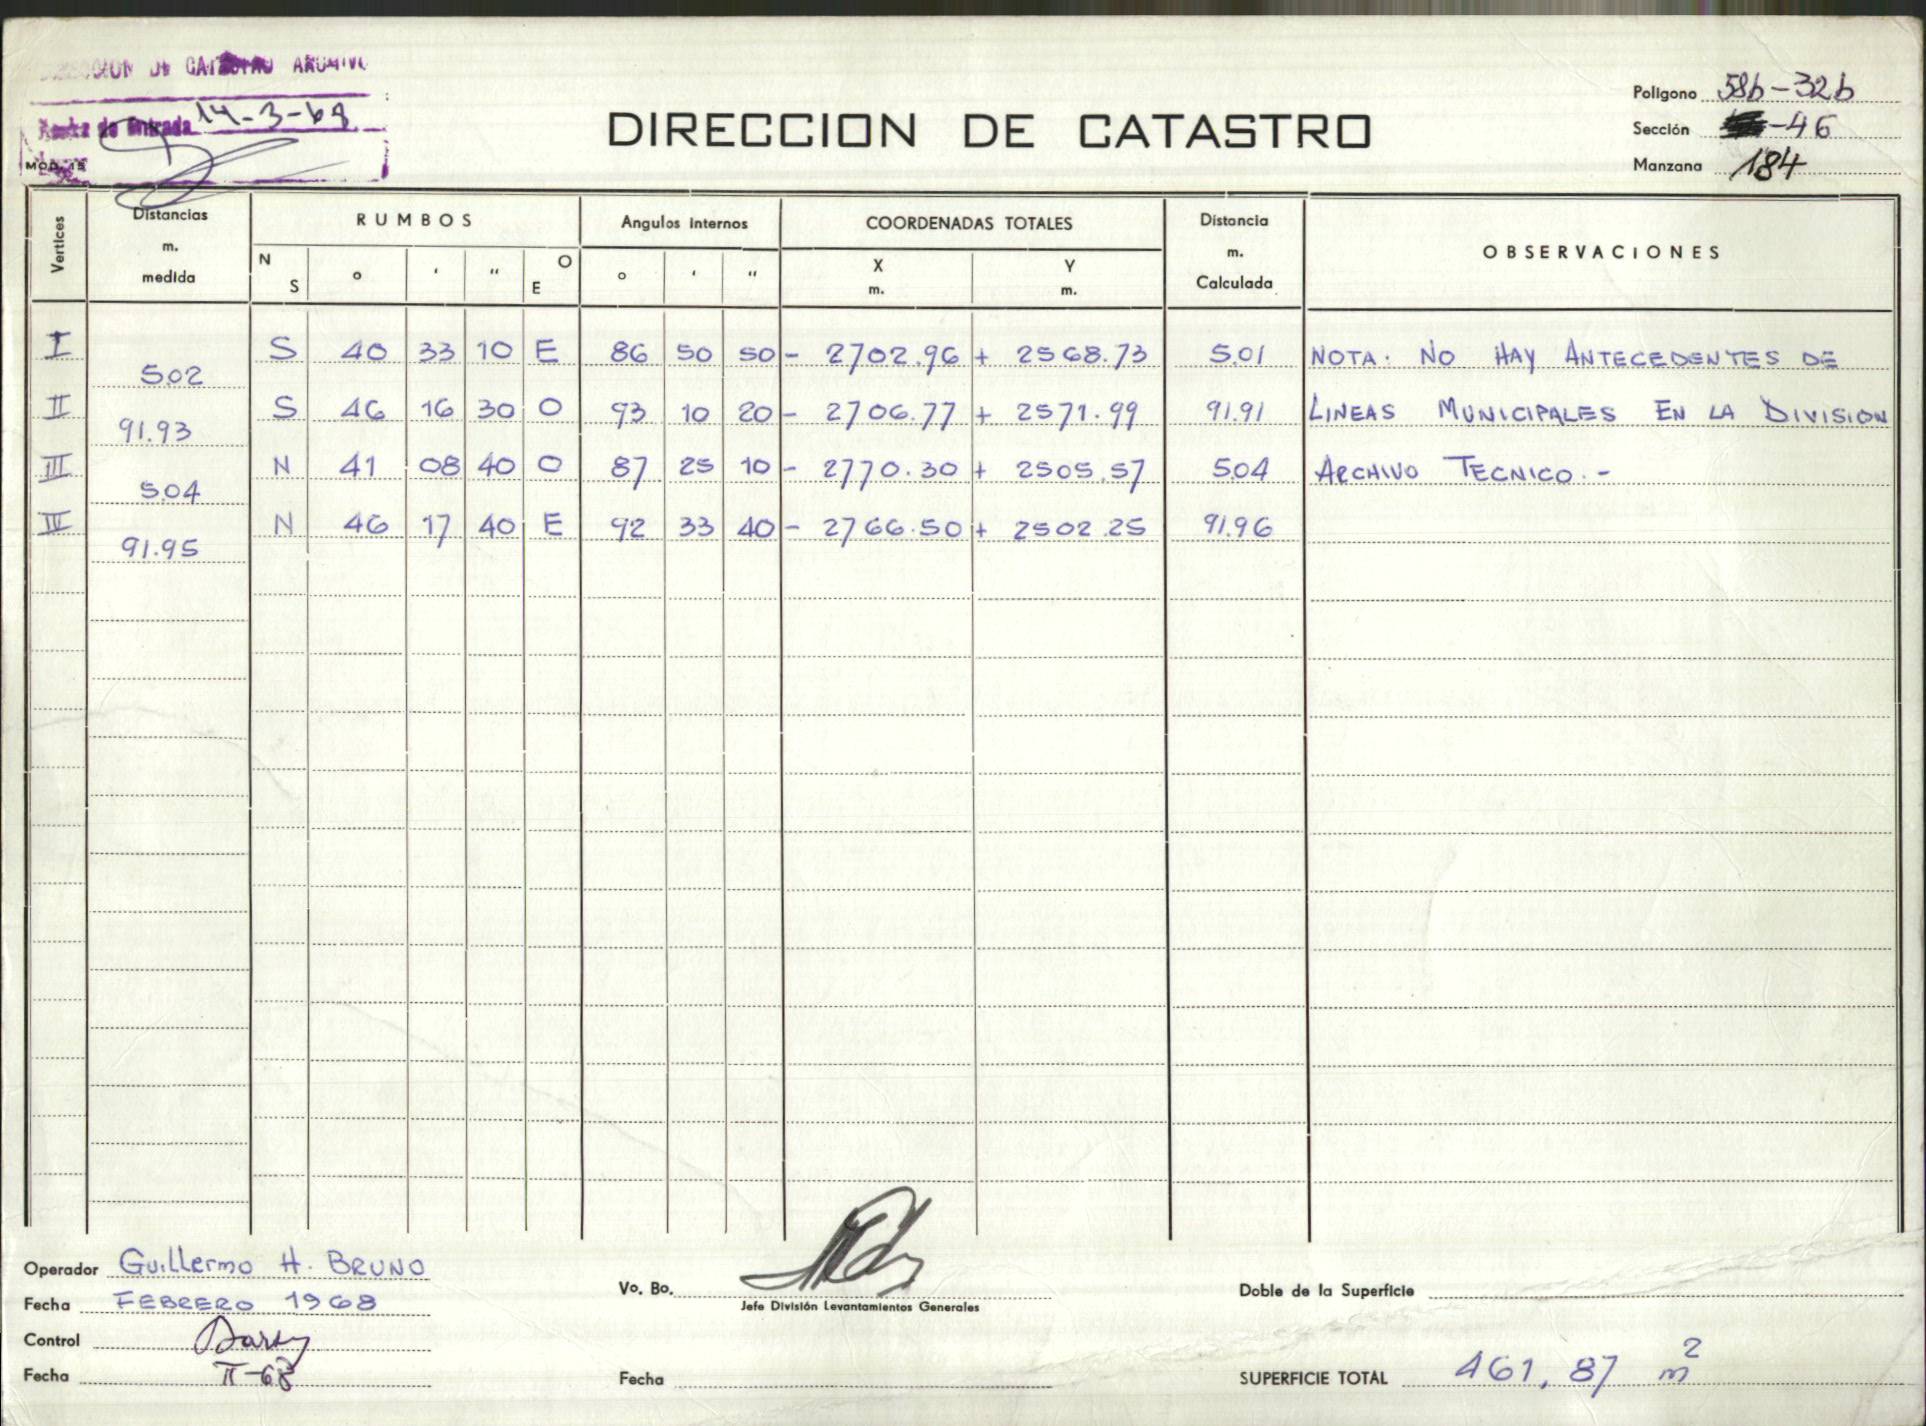 DIRECCION DE CATASTRO ARCHIVO
de Entrada 14-3-68
MOD. 15
DIRECCION DE CATASTRO
Polígono 58b-32b
Sección -46
Manzana 184
Vertices Distancias m. medida RUMBOS N S ° ' " O E Angulos internos ° ' " COORDENADAS TOTALES X m. Y m. Distancia m. Calculada OBSERVACIONES
I S 40 33 10 E 86 50 50 - 2702.96 + 2568.73 5.01 NOTA: NO HAY ANTECEDENTES DE
5.02
II S 46 16 30 O 93 10 20 - 2706.77 + 2571.99 91.91 LINEAS MUNICIPALES EN LA DIVISION
91.93
III N 41 08 40 O 87 25 10 - 2770.30 + 2505.57 5.04 ARCHIVO TECNICO.-
5.04
IV N 46 17 40 E 92 33 40 - 2766.50 + 2502.25 91.96
91.95
Operador Guillermo H. BRUNO
Fecha FEBRERO 1968
Control
Fecha II-68
Vo. Bo.
Jefe División Levantamientos Generales
Fecha
Doble de la Superficie
SUPERFICIE TOTAL 461,87 m²